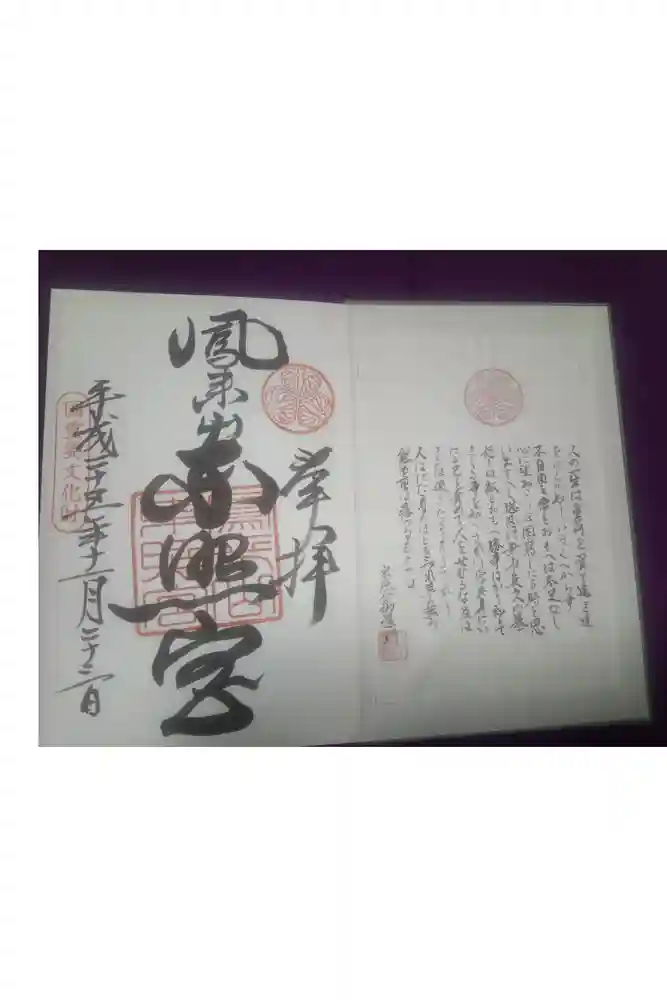 人の一生は重荷を負て遠き道
をゆくがごとしいそぐべからず
不自由を常とおもへば不足なし
心に望おこらば困窮したる時を思
ひ出すべし堪忍は無事長久の基
いかりは敵とおもへ勝事ばかり知て
まくる事を知らざれば害其身にい
たるおのれを責て人をせむるな及ば
ざるは過たるよりまされり
人はただ身のほどを知れ草の葉の
露も重きは落つるものかな
奉拝
鳳来山東照宮
平成二十五年十一月二十三日
国重要文化財